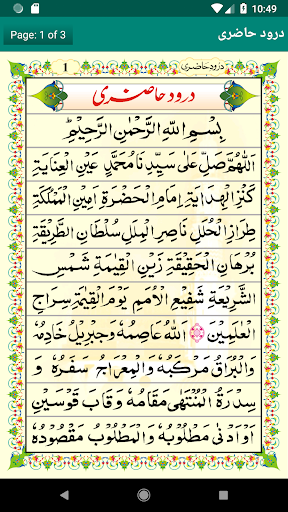 10:49
Page: 1 of 3
درود حاضری
1
درود حاضری
درود حاضری
بِسْمِ اللهِ الرَّحْمٰنِ الرَّحِيْمِ
اَللّٰهُمَّ صَلِّ عَلٰى سَيِّدِنَا مُحَمَّدٍ عَيْنِ الْعِنَايَةِ
كَنْزِ الْهِدَايَةِ اِمَامِ الْحَضْرَةِ اَمِيْنِ الْمَمْلَكَةِ
طِرَازِ الْحُلَلِ نَاصِرِ الْمِلَلِ سُلْطَانِ الطَّرِيْقَةِ
بُرْهَانِ الْحَقِيْقَةِ زَيْنِ الْقِيٰمَةِ شَمْسِ
الشَّرِيْعَةِ شَفِيْعِ الْاُمَمِ يَوْمَ الْقِيٰمَةِ سِرَاجِ
الْعٰلَمِيْنَ اَللهُ عَاصِمُهٗ وَجِبْرِيْلُ خَادِمُهٗ
وَالْبُرَاقُ مَرْكَبُهٗ وَالْمِعْرَاجُ سَفَرُهٗ وَ
سِدْرَةُ الْمُنْتَهٰى مَقَامُهٗ وَ قَابَ قَوْسَيْنِ
اَوْ اَدْنٰى مَطْلُوْبُهٗ وَالْمَطْلُوْبُ مَقْصُوْدُهٗ